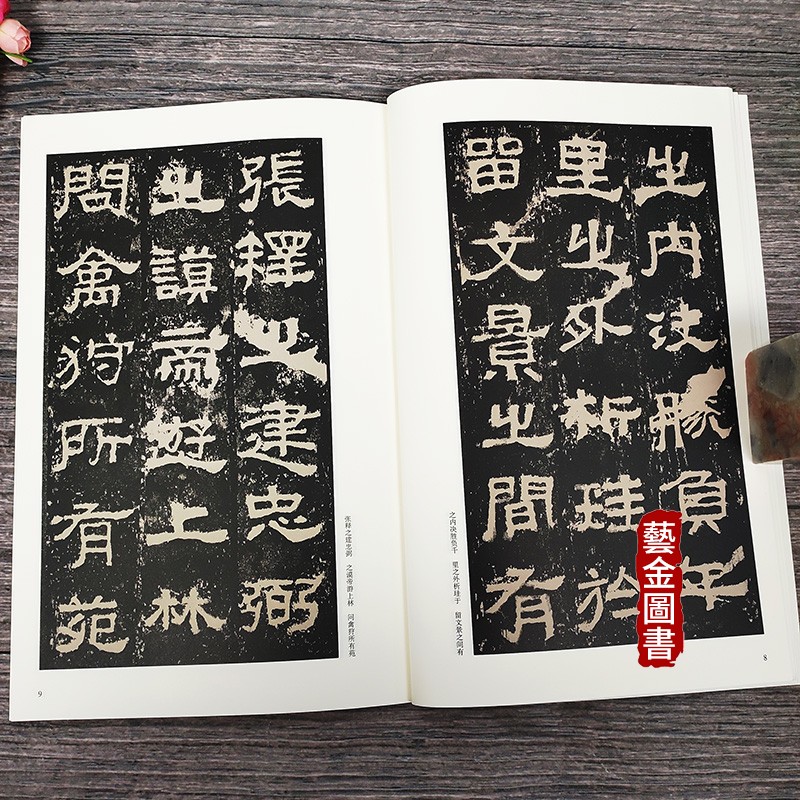 之内決勝負千
里之外析珪於
留文景之間有
之内决胜负千 里之外析珪于 留文景之间有
8
張釋之建忠弼
之謨帝遊上林
問禽狩所有苑
张释之建忠弼 之谟帝游上林 问禽狩所有苑
9
藝金圖書